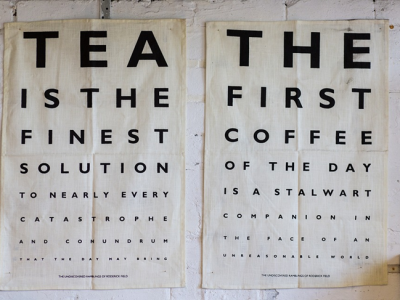 TEA
IS THE
FINEST
SOLUTION
TO NEARLY EVERY
CATASTROPHE
AND CONUNDRUM
THAT THE DAY MAY BRING
THE
FIRST
COFFEE
OF THE DAY
IS A STALWART
COMPANION IN
THE FACE OF AN
UNREASONABLE WORLD